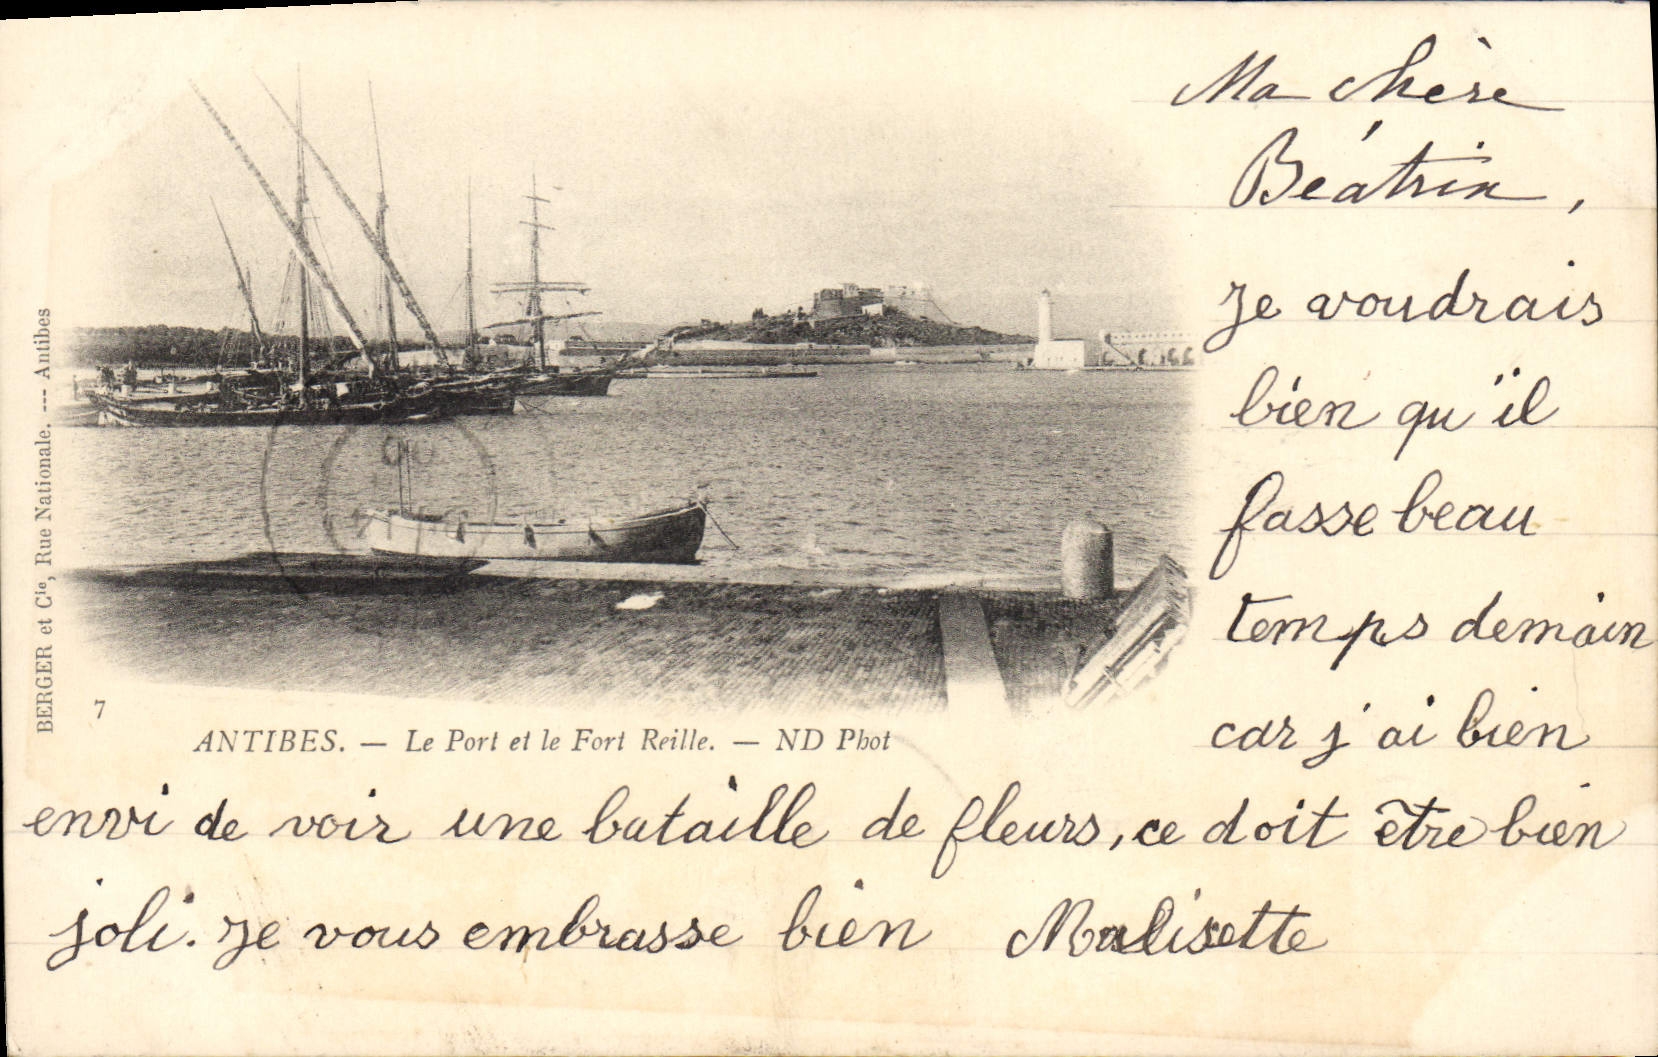 Ma chère
Béatrix,
je voudrais
bien qu'il
fasse beau
temps demain
car j'ai bien
envi de voir une bataille de fleurs, ce doit être bien
joli. je vous embrasse bien Malisette
BERGER et Cie, Rue Nationale. --- Antibes
7
ANTIBES. — Le Port et le Fort Reille. — ND Phot